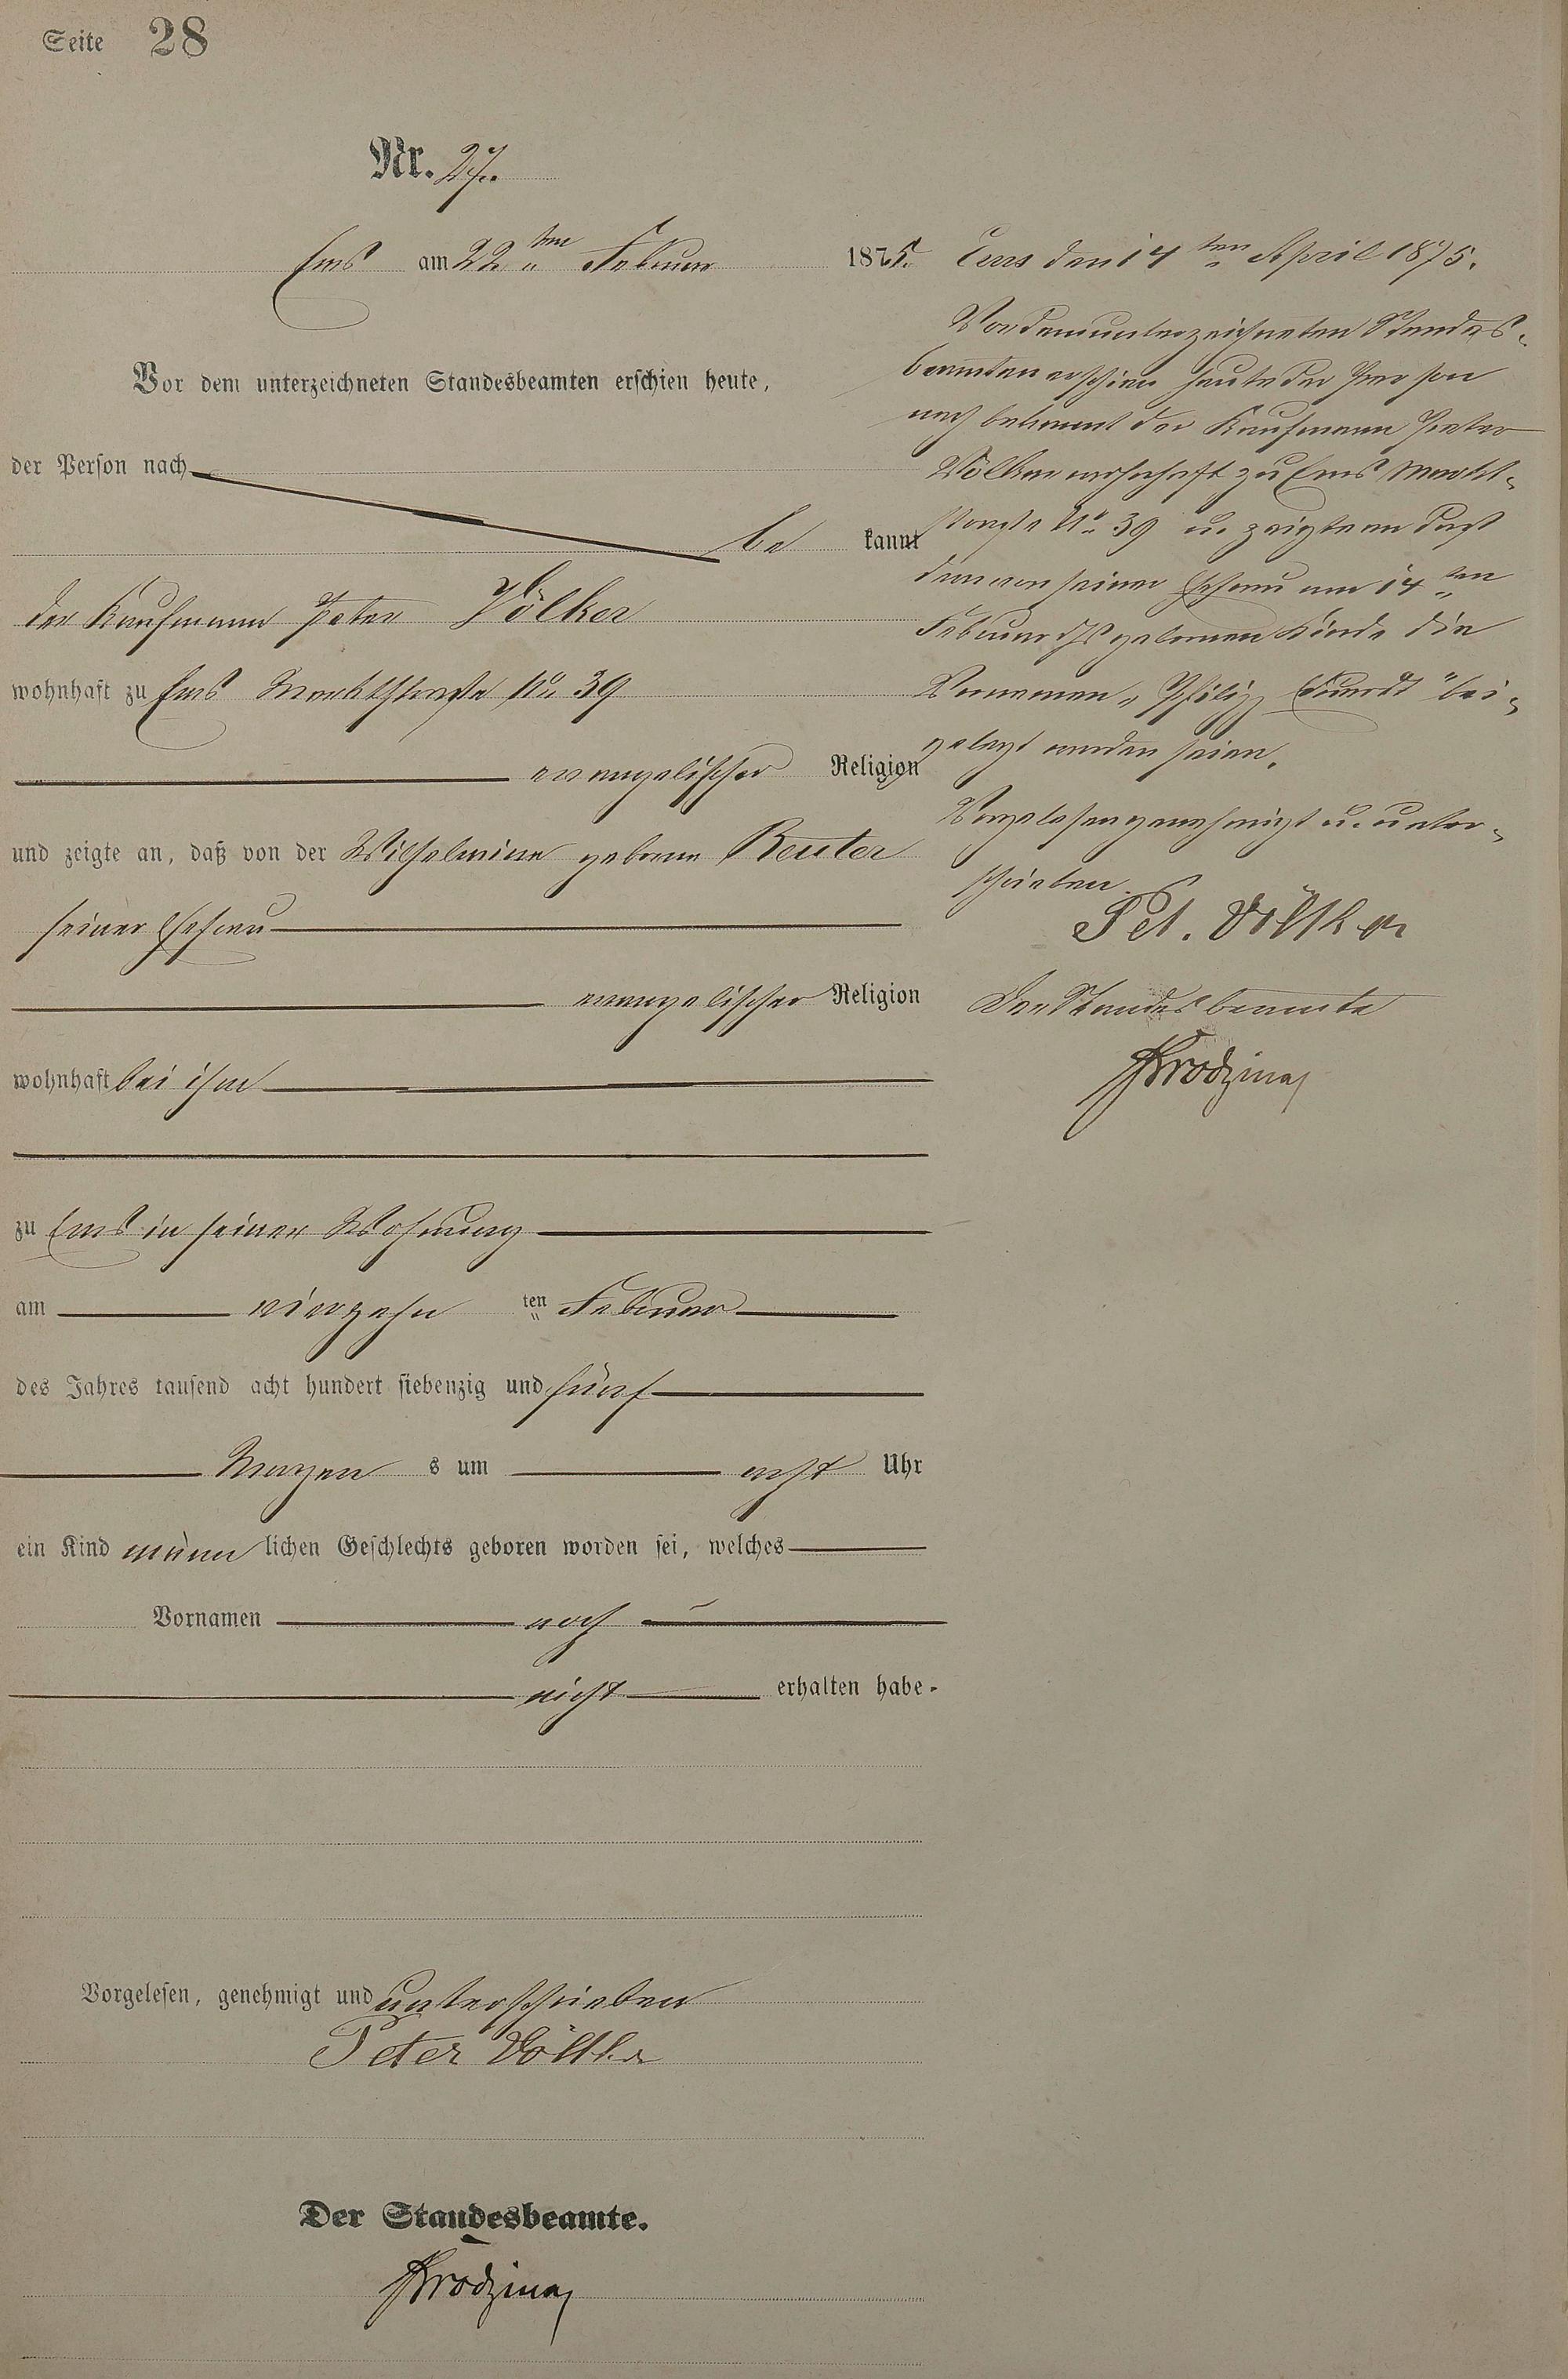 Seite 28
Nr. 27.
Ems am 22ten Februar 1875.
Vor dem unterzeichneten Standesbeamten erschien heute,
der Person nach
be kannt
der Kaufmann Peter Völker
wohnhaft zu Ems Marktstraße No 39
evangelischer Religion
und zeigte an, daß von der Wilhelmine geborne Reuter
seiner Ehefrau
evangelischer Religion
wohnhaft bei ihm
zu Ems in seiner Wohnung
am vierzehn ten Februar
des Jahres tausend acht hundert siebenzig und fünf
Morgen s um acht Uhr
ein Kind männ lichen Geschlechts geboren worden sei, welches
Vornamen noch
nicht erhalten habe.
Vorgelesen, genehmigt und unterschrieben
Peter Völker
Der Standesbeamte.
Ems den 14ten April 1875.
Vor dem unterzeichneten Standes-
beamten erschien heute der Person
nach bekannt der Kaufmann Peter
Völker wohnhaft zu Ems Markt-
straße No 39 u. zeigte an daß
dem von seiner Ehefrau am 14ten
Februar ds geborenen Kinde die
Vornamen „Philipp Ewald" bei-
gelegt worden seien.
Vorgelesen genehmigt u. unter-
schrieben
Pet. Völker
Der Standesbeamte